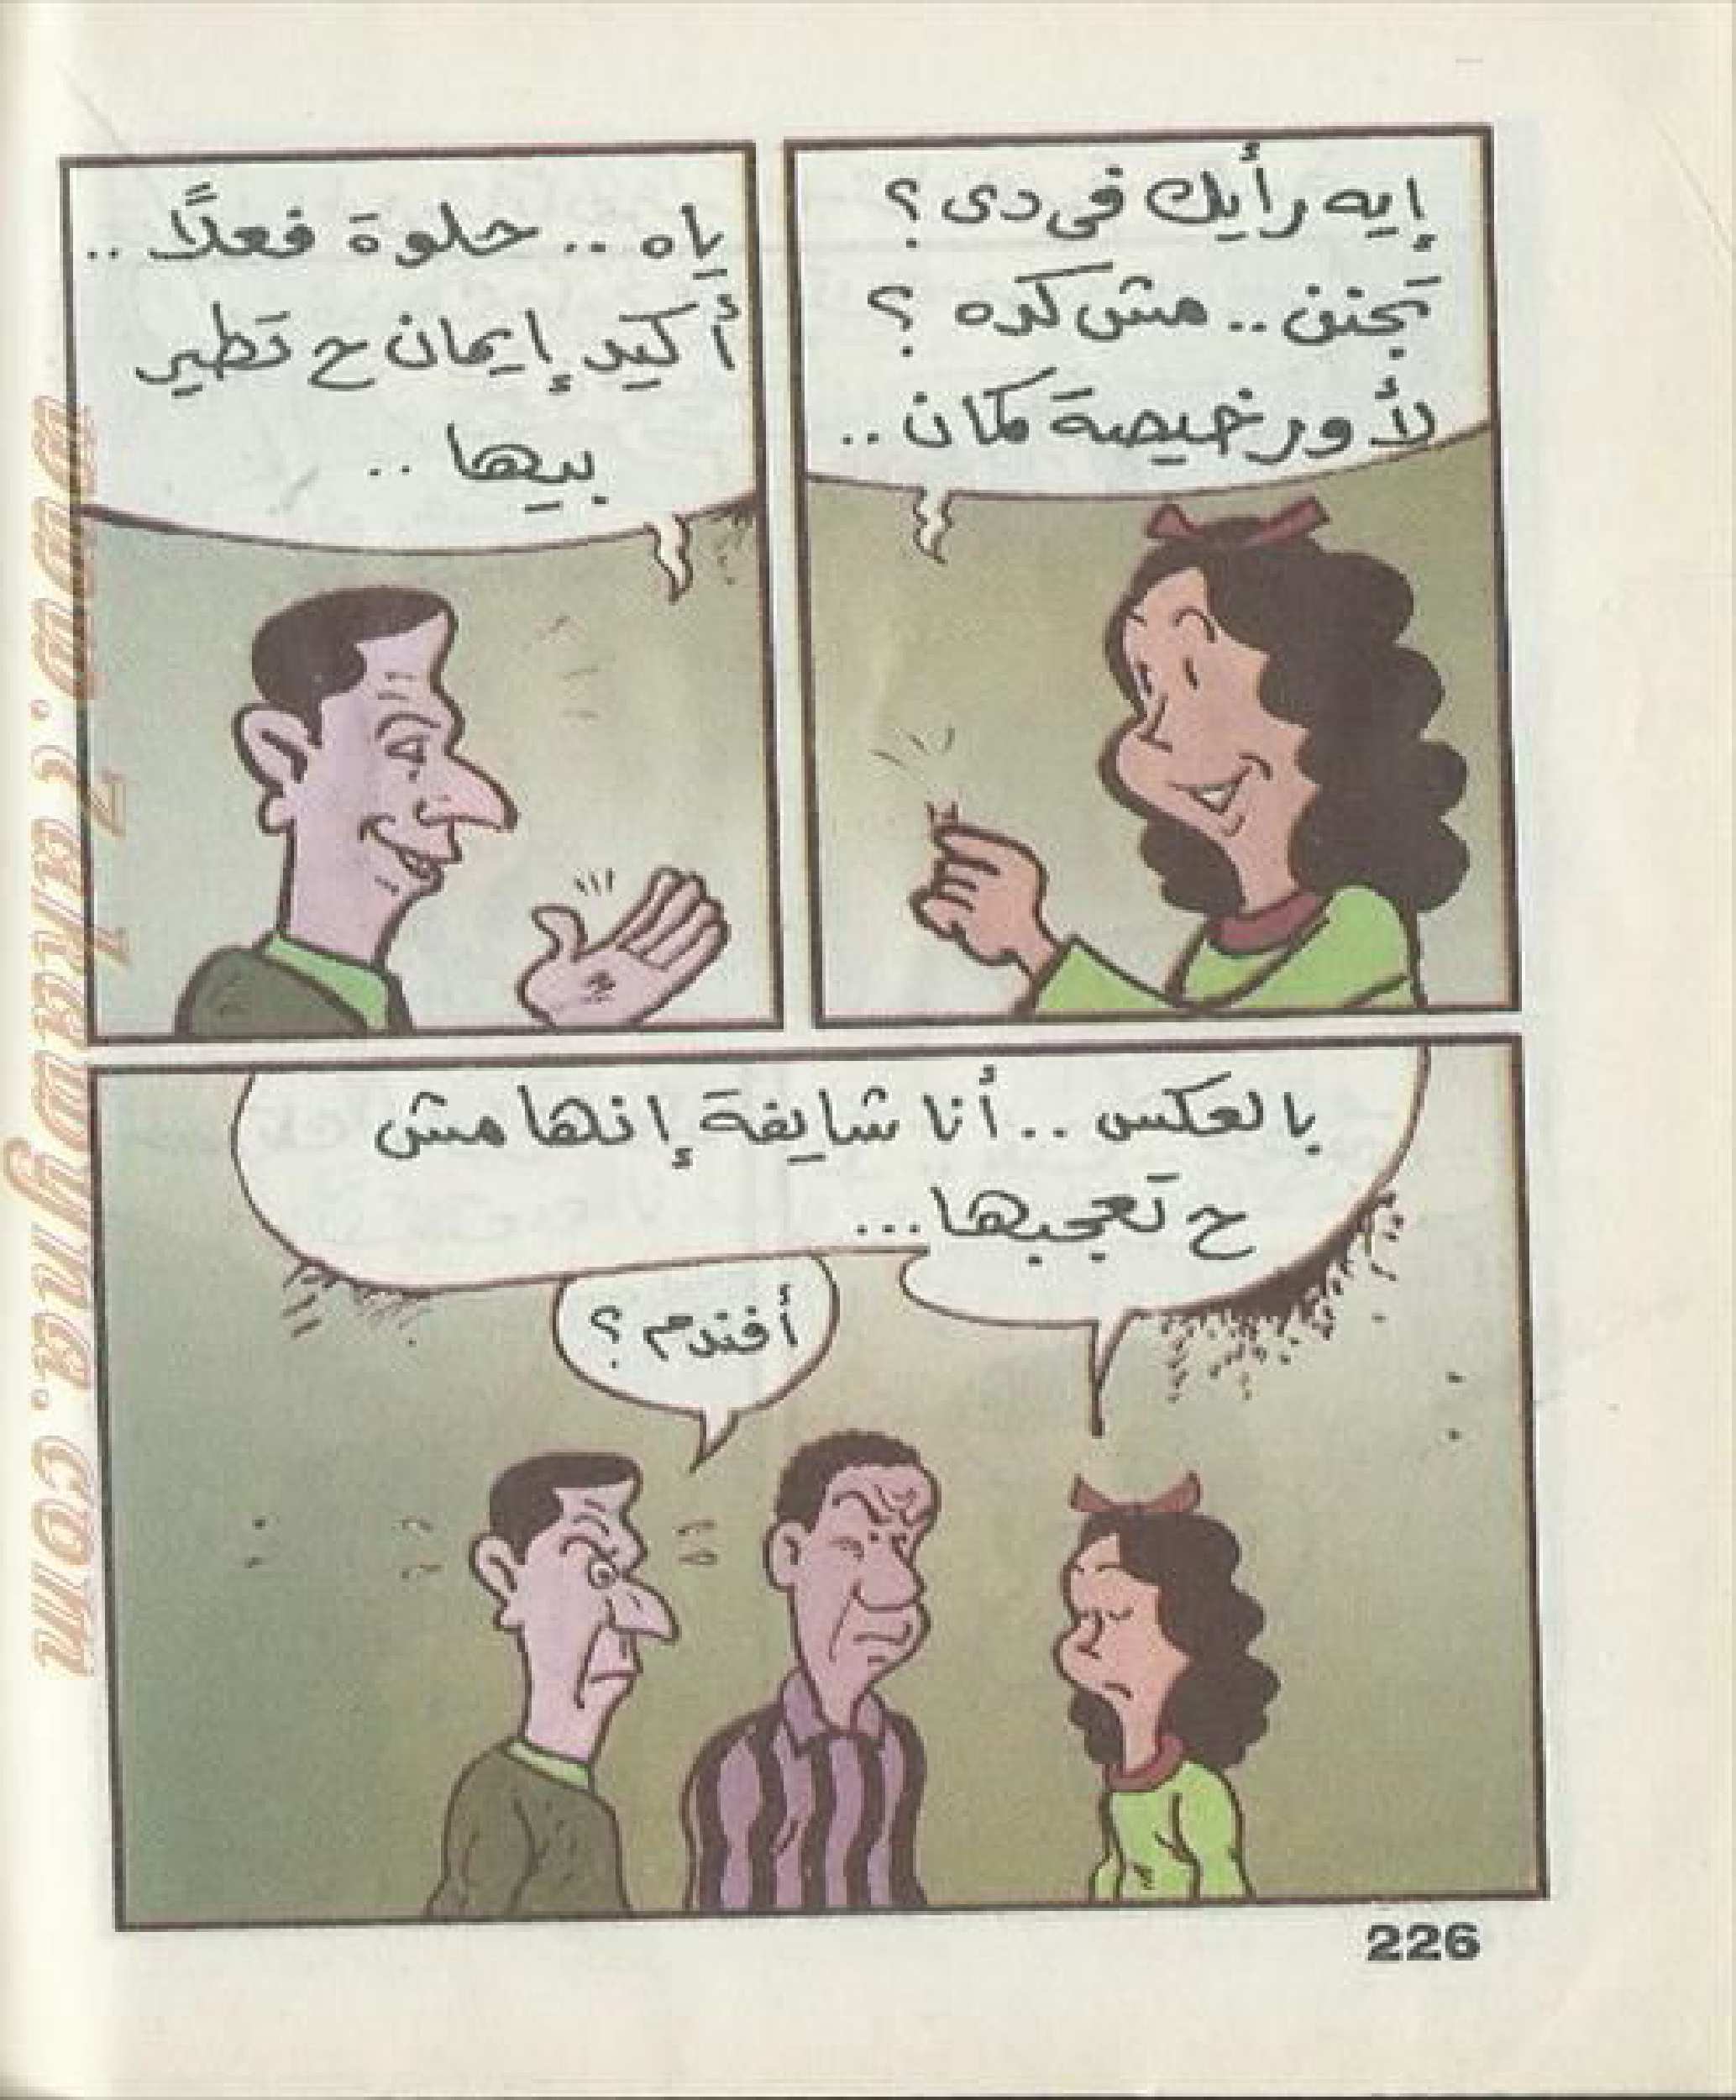 إيه رأيك فى دى؟
تجنن.. مش كده؟
لأ ورخيصة كمان..
ياه .. حلوة فعلاً ..
أكيد إيمان ح تطير
بيها ..
بالعكس .. أنا شايفة إنها مش
ح تعجبها...
أفندم؟
226
www.rewayat2.com